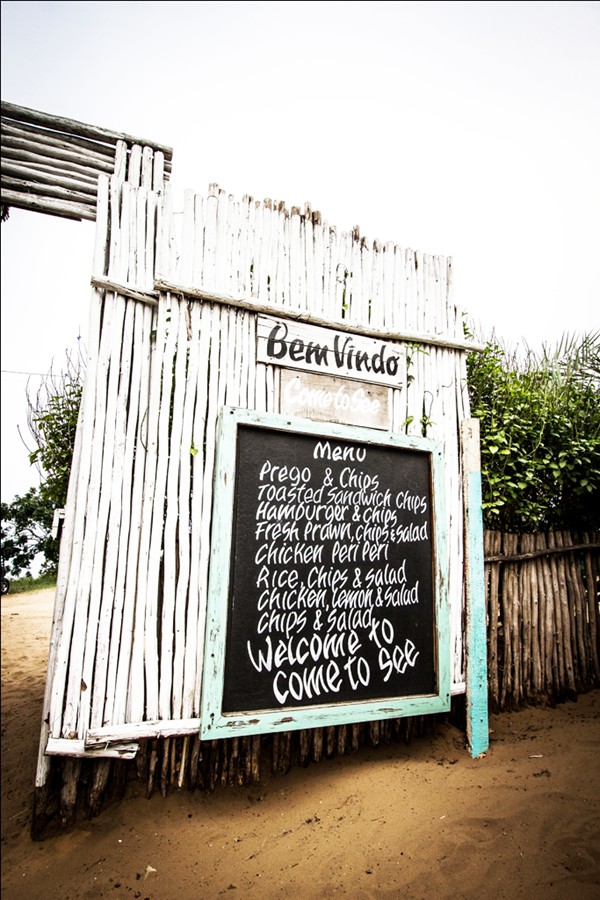 BemVindo
Come to See
Menu
Prego & Chips
Toasted Sandwich Chips
Hamburger & Chips
Fresh Prawn, Chips & Salad
Chicken Peri Peri
Rice, Chips & Salad
Chicken, Lemon & Salad
Chips & Salad
Welcome to
Come to See